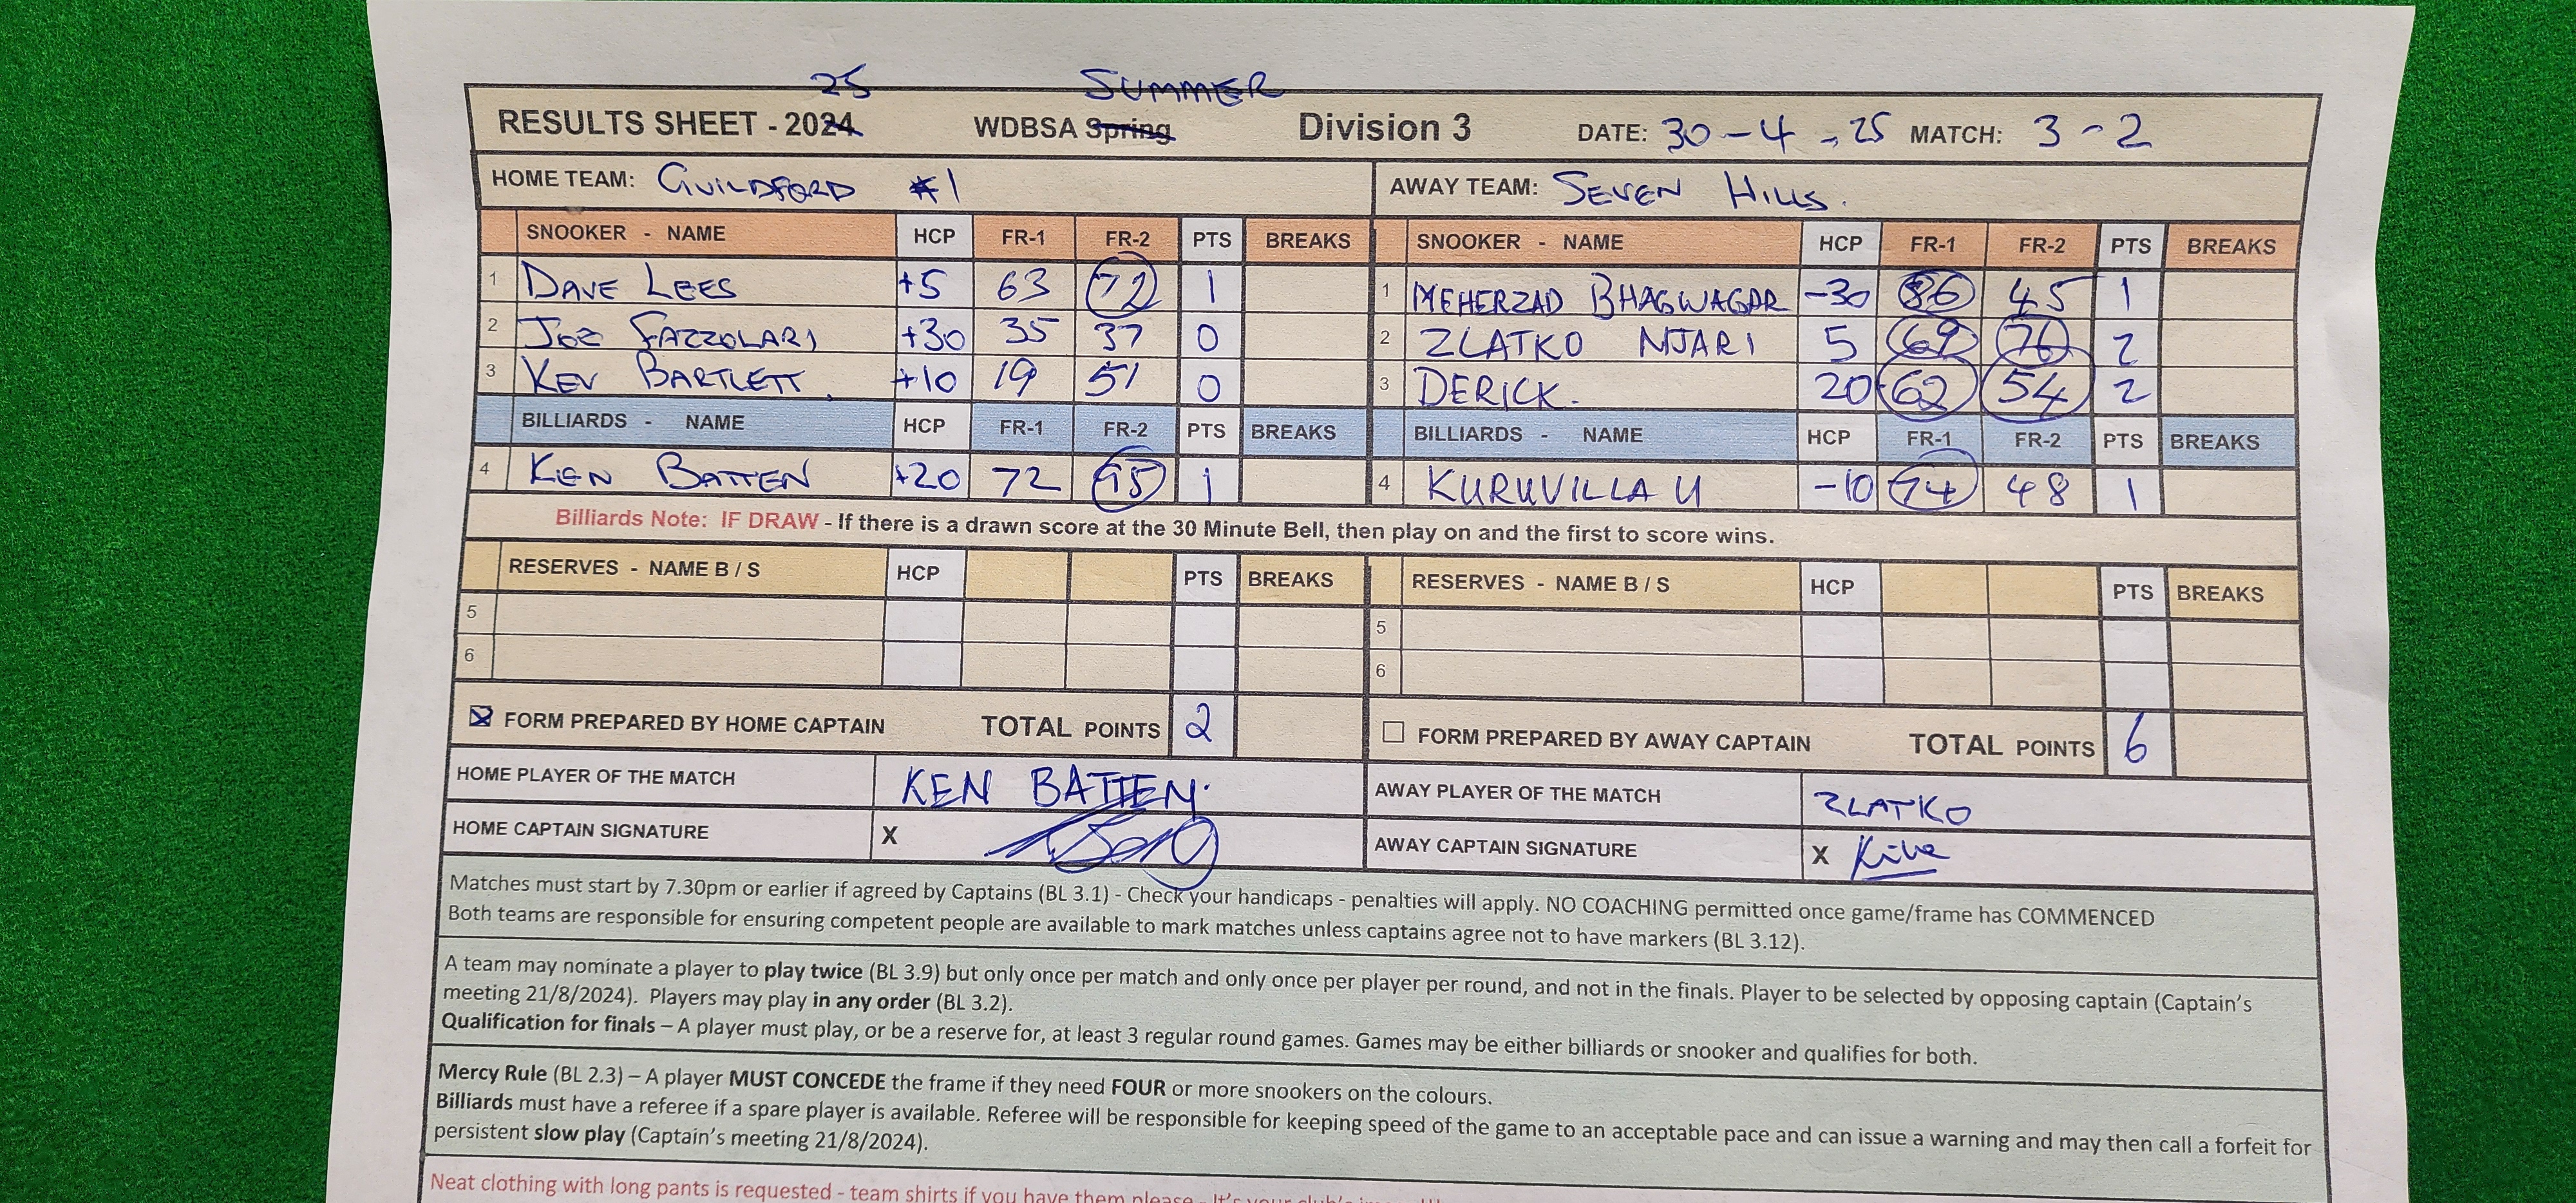 25 SUMMER
RESULTS SHEET - 2024 WDBSA Spring Division 3 DATE: 30-4-25 MATCH: 3-2
HOME TEAM: GUILDFORD #1 AWAY TEAM: SEVEN HILLS.
SNOOKER - NAME HCP FR-1 FR-2 PTS BREAKS SNOOKER - NAME HCP FR-1 FR-2 PTS BREAKS
1 DAVE LEES +5 63 72 1 1 MEHERZAD BHAGWAGAR -30 86 45 1
2 JOE FAZZOLARI +30 35 37 0 2 ZLATKO NJARI 5 69 76 2
3 KEV BARTLETT +10 19 51 0 3 DERICK. 20 62 54 2
BILLIARDS - NAME HCP FR-1 FR-2 PTS BREAKS BILLIARDS - NAME HCP FR-1 FR-2 PTS BREAKS
4 KEN BATTEN +20 72 95 1 4 KURUVILLA U -10 74 48 1
Billiards Note: IF DRAW - If there is a drawn score at the 30 Minute Bell, then play on and the first to score wins.
RESERVES - NAME B / S HCP PTS BREAKS RESERVES - NAME B / S HCP PTS BREAKS
5 5
6 6
FORM PREPARED BY HOME CAPTAIN TOTAL POINTS 2 FORM PREPARED BY AWAY CAPTAIN TOTAL POINTS 6
HOME PLAYER OF THE MATCH KEN BATTEN. AWAY PLAYER OF THE MATCH ZLATKO
HOME CAPTAIN SIGNATURE X AWAY CAPTAIN SIGNATURE X
Matches must start by 7.30pm or earlier if agreed by Captains (BL 3.1) - Check your handicaps - penalties will apply. NO COACHING permitted once game/frame has COMMENCED
Both teams are responsible for ensuring competent people are available to mark matches unless captains agree not to have markers (BL 3.12).
A team may nominate a player to play twice (BL 3.9) but only once per match and only once per player per round, and not in the finals. Player to be selected by opposing captain (Captain's
meeting 21/8/2024). Players may play in any order (BL 3.2).
Qualification for finals – A player must play, or be a reserve for, at least 3 regular round games. Games may be either billiards or snooker and qualifies for both.
Mercy Rule (BL 2.3) – A player MUST CONCEDE the frame if they need FOUR or more snookers on the colours.
Billiards must have a referee if a spare player is available. Referee will be responsible for keeping speed of the game to an acceptable pace and can issue a warning and may then call a forfeit for
persistent slow play (Captain's meeting 21/8/2024).
Neat clothing with long pants is requested - team shirts if you have them please - It's your club's